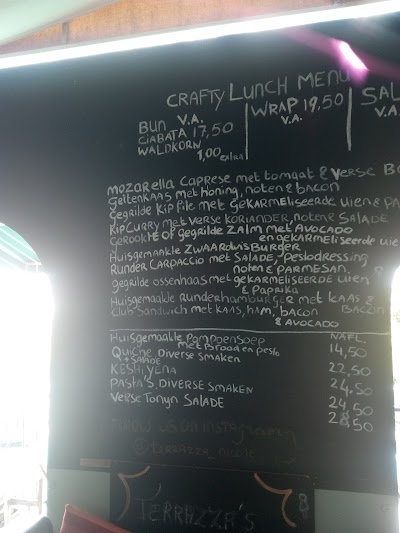 CRAFTY LUNCH MENU
BUN V.A.
CIABATA 17,50
WALDKORN
1,00 extra
WRAP 19,50
V.A.
SAL
V.A.
MOZARELLA CAPRESE met tomaat & VERSE
GEITENKAAS met HONING, noten & bacon
GEGRILDE KIP FILE met GEKARMELISEERDE UIEN &
KIPCURRY met VERSE KORIANDER, noten & SALADE
GEROOKTE OF GEGRILDE ZALM met AVOCADO
en gekarmeliseerde uie
Huisgemaakte ZWAARDVIS Burger
Runder CARPACCIO met SALADE, Pestodressing
noten & PARMESAN.
gegrilde ossenhaas met geKARMELISEERDE UIEN
& Paprika
Huisgemaakte Runderhamburger met KAAS &
BACON
Club Sandwich met KAAS, HAM, bacon
& AVOCADO
Huisgemaakte Pompoensoep
met Brood en pesto
NAFL.
14,50
QUICHE DIVERSE SMAKEN
+ SALADE
22,50
KESHI YENA
24,50
PASTA'S, DIVERSE SMAKEN
24,50
VERSE TONYN SALADE
28,50
FOLLOW US ON instagram
@terrazza_nicole
TERRAZZA'S